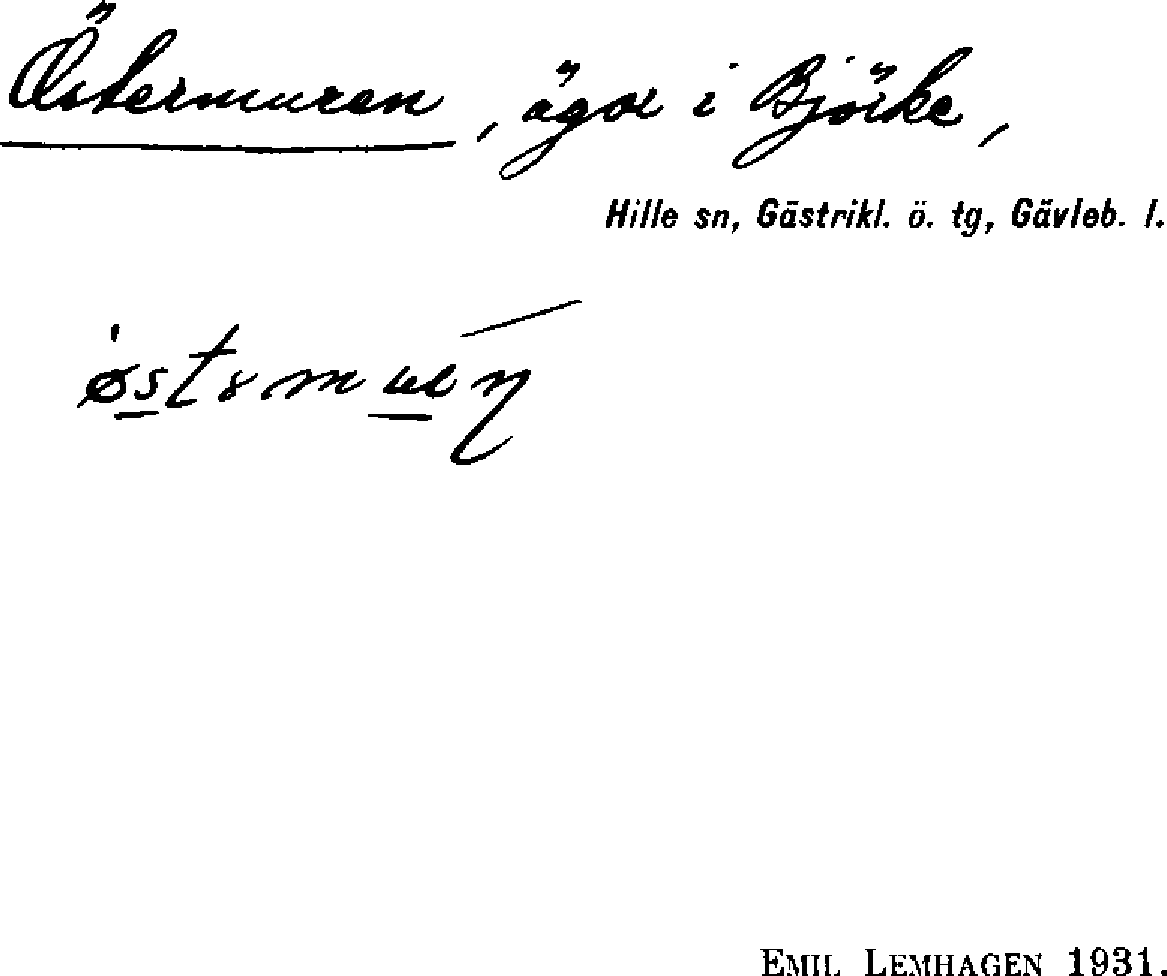 Östermuren, ägor i Björke,
Hille sn, Gästrikl. ö. tg, Gävleb. l.
EMIL LEMHAGEN 1931.